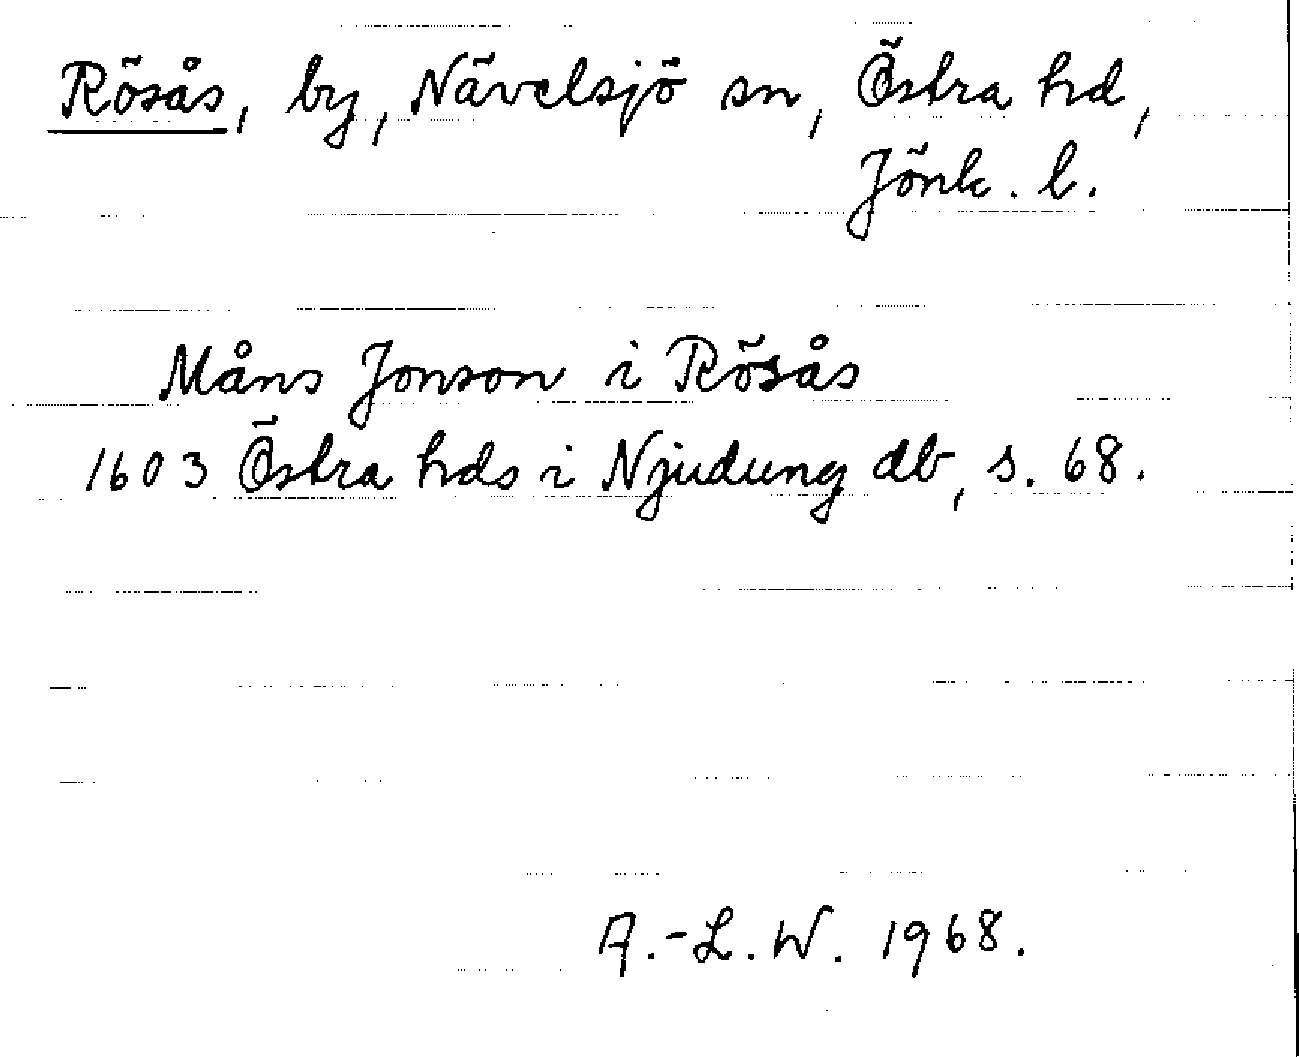 Rösås, by, Nävelsjö sn, Östra hd,
Jönk. l.
Måns Jonson i Rösås
1603 Östra hds i Njudung db, s. 68.
A.-L. W. 1968.